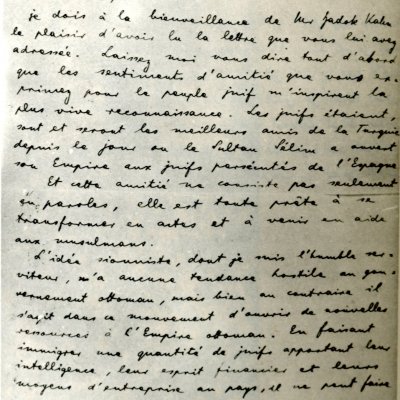 je dois à la bienveillance de Mr Zadok Kahn
le plaisir d'avoir lu la lettre que vous lui avez
adressée. Laissez moi vous dire tout d'abord
que les sentiments d'amitié que vous ex-
primez pour le peuple juif m'inspirent la
plus vive reconnaissance. Les juifs étaient,
sont et seront les meilleurs amis de la Turquie
depuis le jour ou le Sultan Sélim a ouvert
son Empire aux juifs persécutés de l'Espagne
Et cette amitié ne consiste pas seulement
en paroles, elle est toute prête à se
transformer en actes et à venir en aide
aux musulmans.
L'idée sionniste, dont je suis l'humble ser-
viteur, n'a aucune tendance hostile au gou-
vernement ottoman, mais bien au contraire il
s'agit dans ce mouvement d'ouvrir de nouvelles
ressources à l'Empire ottoman. En faisant
immigrer une quantité de juifs apportant leur
intelligence, leur esprit financier et leurs
moyens d'entreprise au pays, il ne peut faire